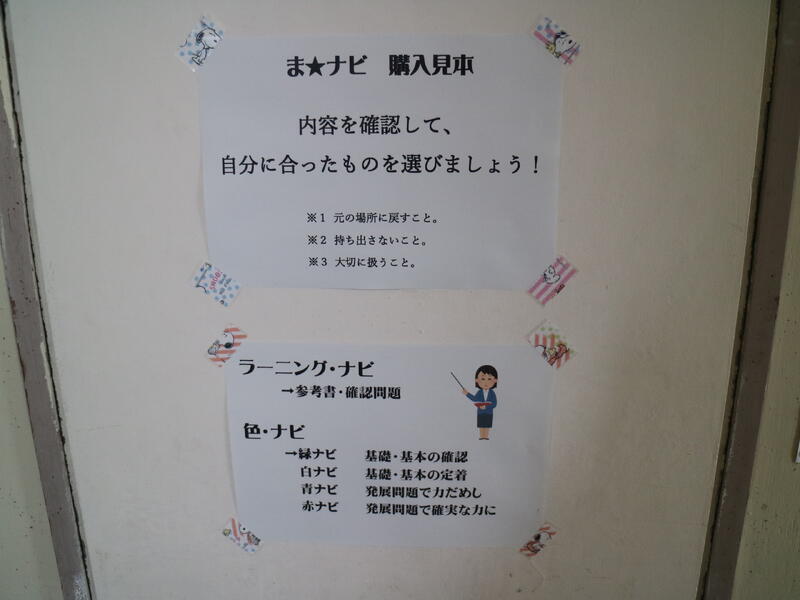 ま★ナビ 購入見本
内容を確認して、
自分に合ったものを選びましょう！
※1 元の場所に戻すこと。
※2 持ち出さないこと。
※3 大切に扱うこと。
ラーニング・ナビ
→参考書・確認問題
色・ナビ
→緑ナビ 基礎・基本の確認
白ナビ 基礎・基本の定着
青ナビ 発展問題で力だめし
赤ナビ 発展問題で確実な力に